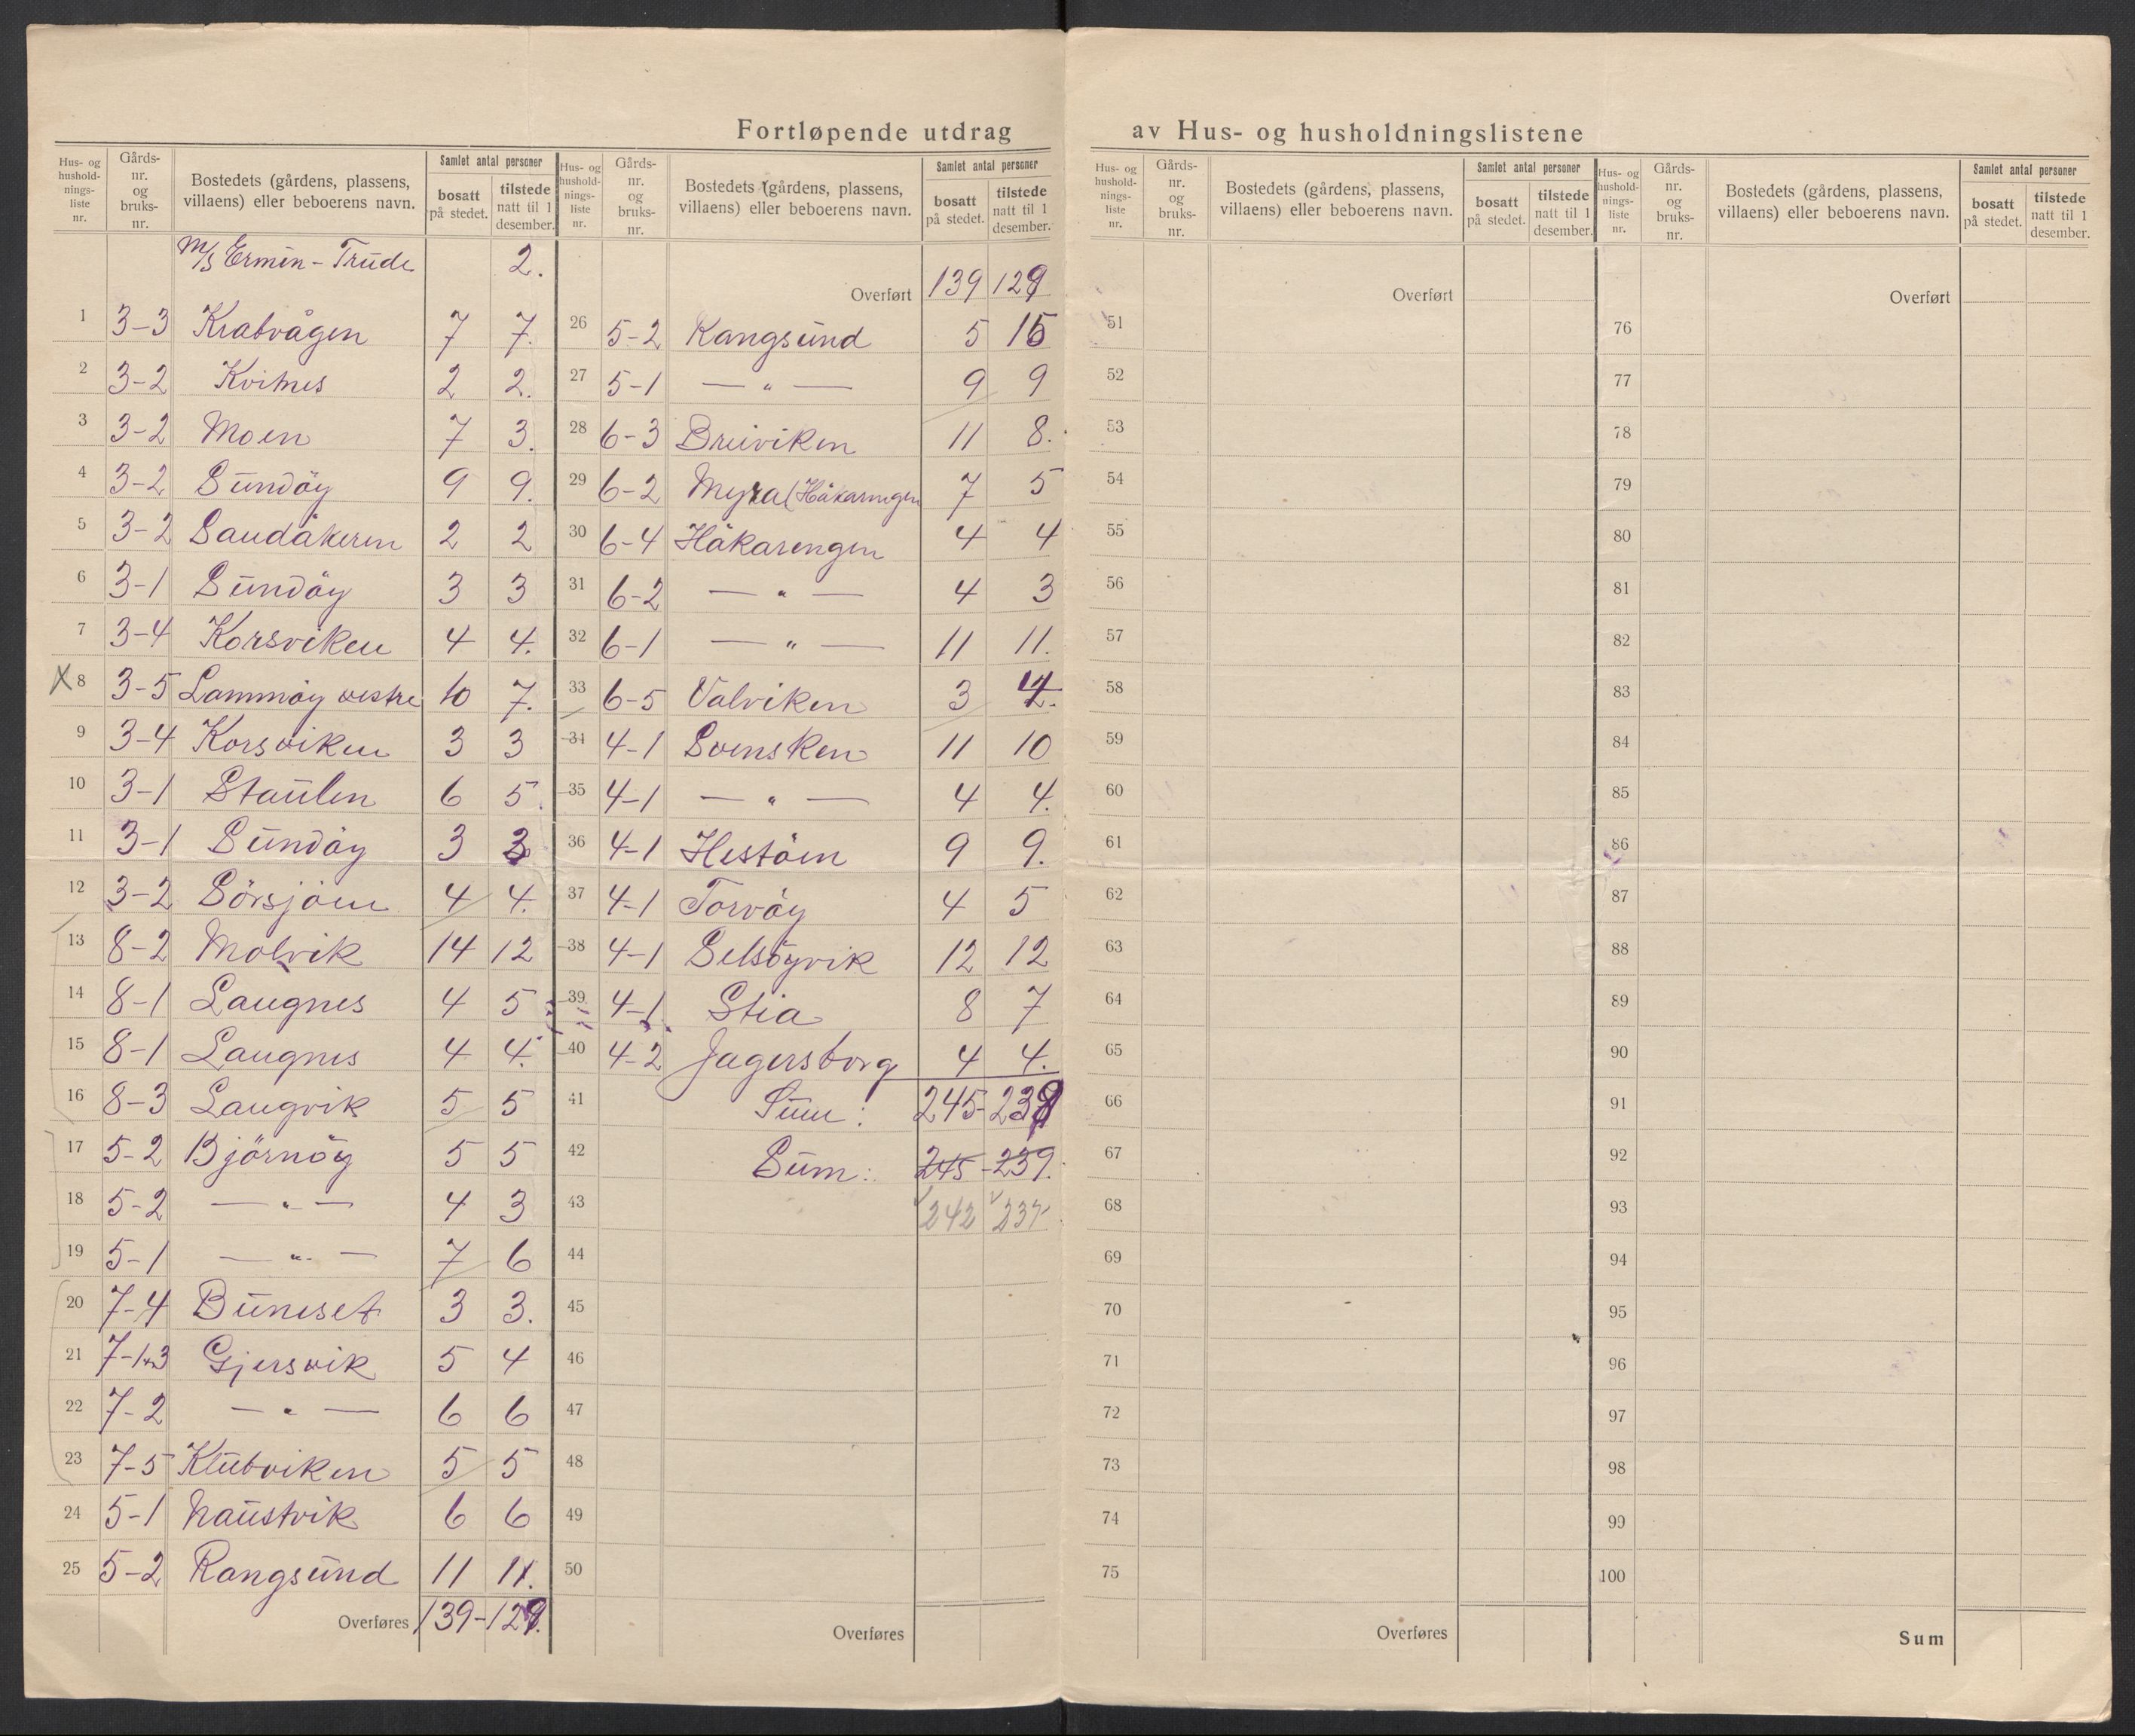 Fortløpende utdrag av Hus- og husholdningslistene
Hus- og hushold- nings- liste nr. | Gårds- nr. og bruks- nr. | Bostedets (gårdens, plassens, villaens) eller beboerens navn. | Samlet antal personer | bosatt på stedet. | tilstede natt til 1 desember.
M/S Ermin-Trude 2.
1 3-3 Krabvågen 7 7.
2 3-2 Kvitnes 2 2.
3 3-2 Moen 7 3.
4 3-2 Sundöy 9 9.
5 3-2 Sandåkeren 2 2
6 3-1 Sundöy 3 3
7 3-4 Korsviken 4 4.
X 8 3-5 Lammöy vestre 10 7.
9 3-4 Korsviken 3 3
10 3-1 Staulen 6 5.
11 3-1 Sundöy 3 3
12 3-2 Sörsjöen 4 4.
13 8-2 Molvik 14 12
14 8-1 Langnes 4 5
15 8-1 Langnes 4 4.
16 8-3 Langvik 5 5
17 5-2 Björnöy 5 5
18 5-2 — " — 4 3
19 5-1 — " — 7 6
20 7-4 Buneset 3 3.
21 7-1 3 Gjersvik 5 4
22 7-2 — " — 6 6
23 7-5 Klubviken 5 5
24 5-1 Naustvik 6 6
25 5-2 Rangsund 11 11.
Overføres 139-129.
Hus- og hushold- nings- liste nr. | Gårds- nr. og bruks- nr. | Bostedets (gårdens, plassens, villaens) eller beboerens navn. | Samlet antal personer | bosatt på stedet. | tilstede natt til 1 desember.
Overført 139 129
26 5-2 Rangsund 5 15
27 5-1 — " — 9 9
28 6-3 Breiviken 11 8.
29 6-2 Myra (Håkarengen 7 5
30 6-4 Håkarengen 4 4
31 6-2 — " — 4 3
32 6-1 — " — 11 11.
33 6-5 Valviken 3 4.
34 4-1 Svensken 11 10
35 4-1 — " — 4 4.
36 4-1 Hestöen 9 9.
37 4-1 Torvöy 4 5
38 4-1 Selsöyvik 12 12
39 4-1 Stia 8 7
40 4-2 Jagersborg 4 4.
41 Sum: 245-239
42 Sum: 245-239.
43 242 237
44
45
46
47
48
49
50
Overføres
Hus- og hushold- nings- liste nr. | Gårds- nr. og bruks- nr. | Bostedets (gårdens, plassens, villaens) eller beboerens navn. | Samlet antal personer | bosatt på stedet. | tilstede natt til 1 desember.
Overført
51
52
53
54
55
56
57
58
59
60
61
62
63
64
65
66
67
68
69
70
71
72
73
74
75
Overføres
Hus- og hushold- nings- liste nr. | Gårds- nr. og bruks- nr. | Bostedets (gårdens, plassens, villaens) eller beboerens navn. | Samlet antal personer | bosatt på stedet. | tilstede natt til 1 desember.
Overført
76
77
78
79
80
81
82
83
84
85
86
87
88
89
90
91
92
93
94
95
96
97
98
99
100
Sum